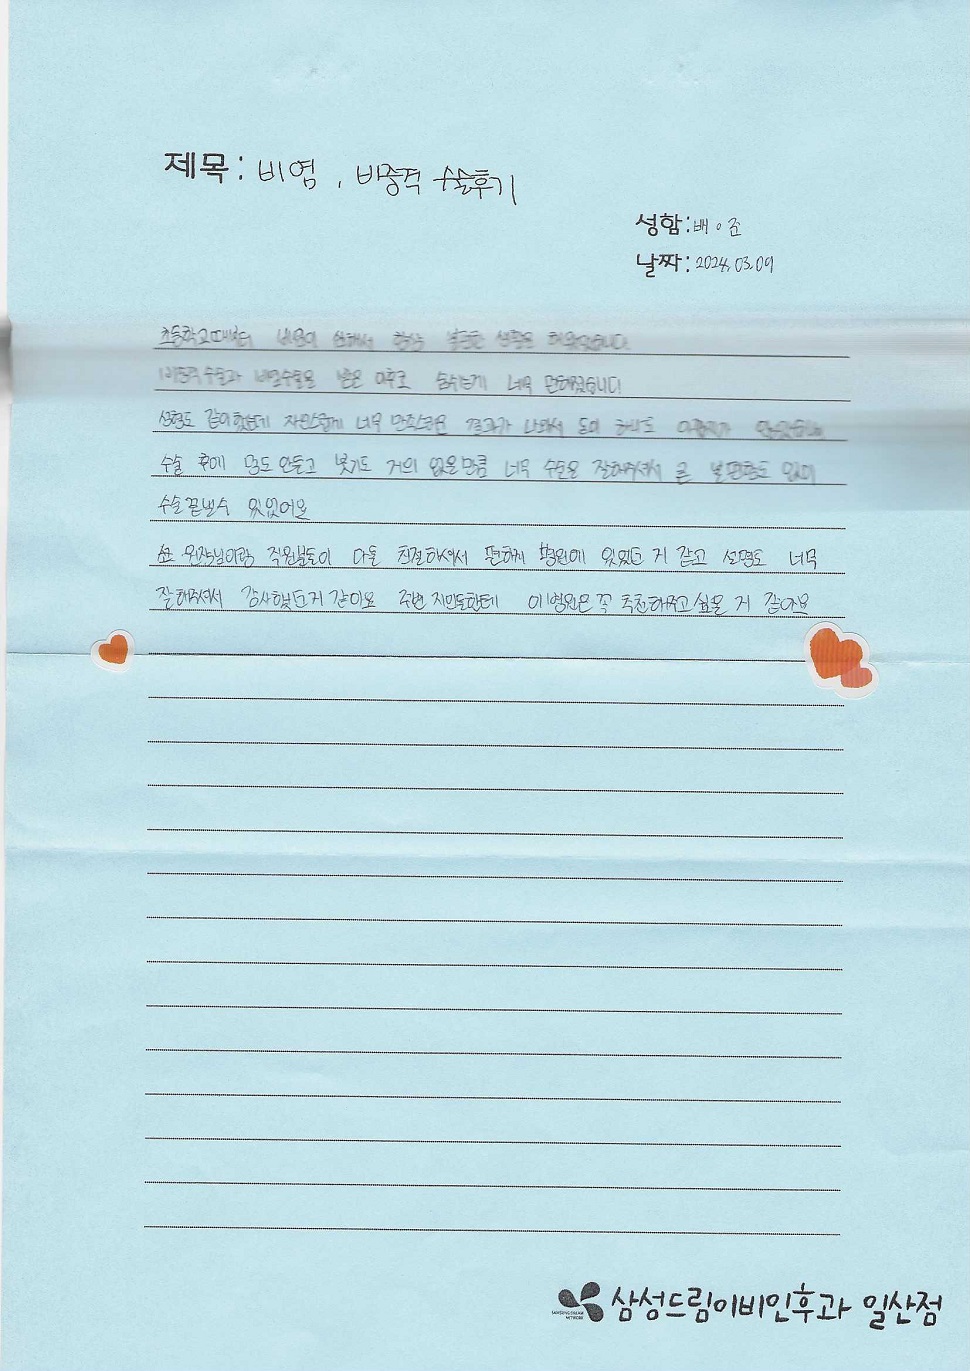 제목: 비염, 비중격 수술후기
성함: 배ㅇ준
날짜: 2024.03.09
초등학교때부터 비염이 심해서 항상 불편한 생활을 해왔었습니다
비중격수술과 비염수술을 받은 이후로 숨쉬는게 너무 편해졌습니다
성형도 같이했는데 자연스럽게 너무 만족스러운 결과가 나와서 돈이 하나도 아깝지가 않았습니다
수술 후에 멍도 안들고 붓기도 거의 없을만큼 너무 수술을 잘해주셔서 큰 불편함도 없이
수술 끝낼수 있었어요
원장님이랑 직원분들이 다들 친절하셔서 편하게 병원에 있었던 거 같고 설명도 너무
잘해주셔서 감사했던거 같아요 주변 지인들한테 이병원은 꼭 추천해주고싶은 거 같아요
삼성드림이비인후과 일산점
SAMSUNG DREAM
NETWORK